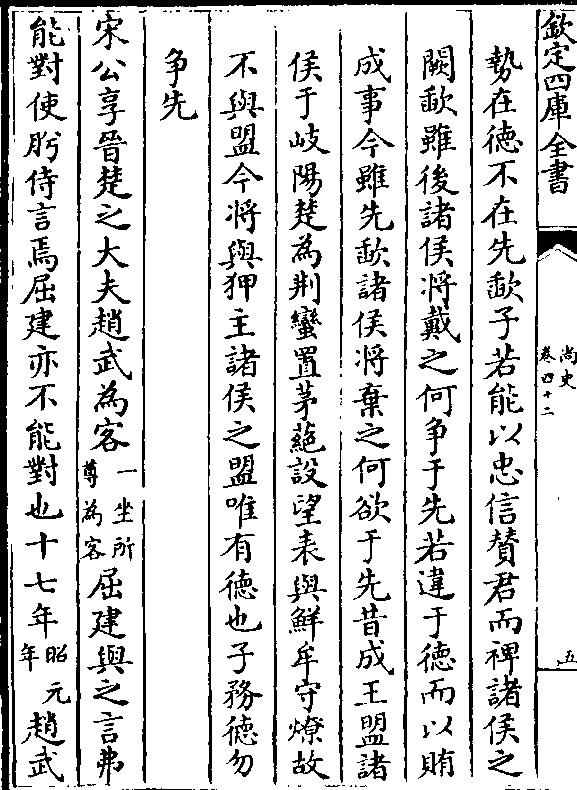 欽定四庫全書
尚史
卷四十二
五
勢在德不在先歃子若能以忠信贊君而裨諸侯之
闕歃雖後諸侯將戴之何争于先若違于德而以賄
成事今雖先歃諸侯將棄之何欲于先昔成王盟諸
侯于岐陽楚為荆蠻置茅蕝設望表與鮮牟守燎故
不與盟今將與狎主諸侯之盟唯有德也子務德勿
争先
宋公享晉楚之大夫趙武為客一坐所尊為客屈建與之言弗
能對使肸侍言焉屈建亦不能對也十七年昭元年趙武